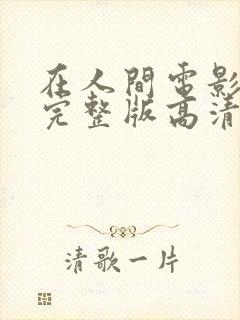 在人間電影
完整版高清
清歌一片